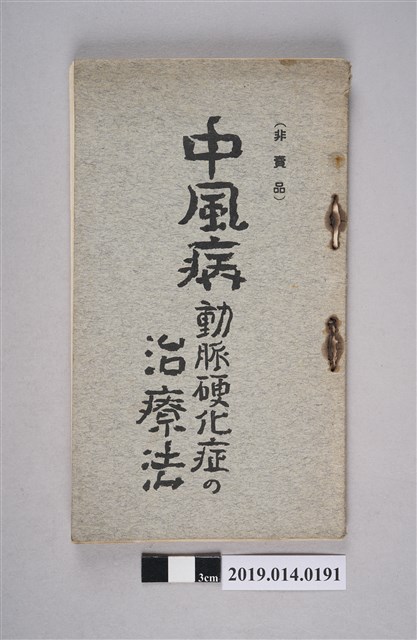 （非賣品）
中風病
動脈硬化症の
治療法
3cm
2019.014.0191